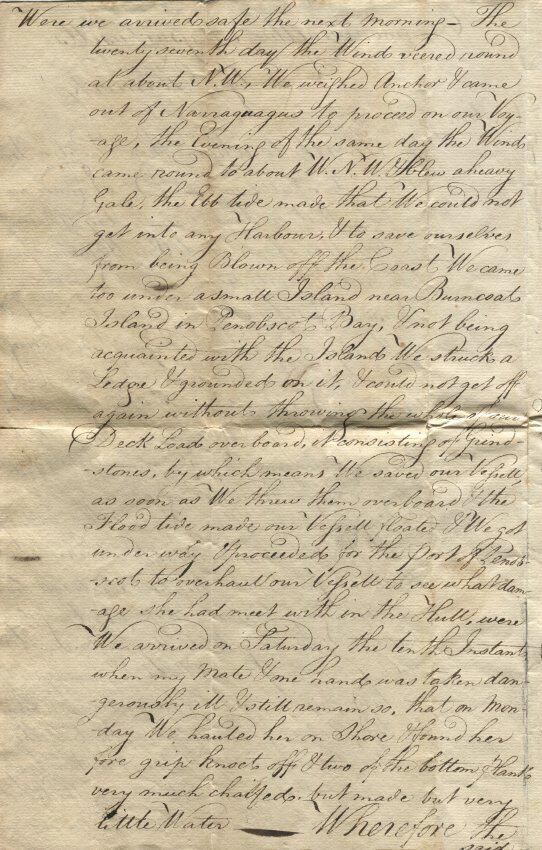 Were we arrived safe the next morning – The
twenty seventh day the Wind veered round
at about N.W., We weighed Anchor & came
out of Narraguagus to proceed on our Voy-
-age, the Evening of the same day the Wind
came round to about W.N.W. & blew a heavy
Gale, the Ebb tide made that We could not
get into any Harbour, & to save ourselves
from being Blown off the Coast We came
too under a small Island near Burncoat
Island in Penobscot Bay, & not being
acquainted with the Island We struck a
Ledge & grounded on it, & could not get off
again without throwing the whole of our
Deck Load overboard, it consisting of Grind-
-stones, by which means We saved our Vessell
as soon as We threw them overboard & the
Flood tide made our Vessell floated & We got
under way & proceeded for the Port of Penob-
-scot to overhaul our Vessell to see what dam-
-age she had meet with in the Hull, were
We arrived on Saturday the tenth Instant
when my Mate & one hand was taken dan-
gerously ill & still remain so, that on Mon-
-day We hauled her on Shore & found her
fore grip knoct off & two of the bottom Planks
very much chaffed, but made but very
little Water — Wherefore the
said